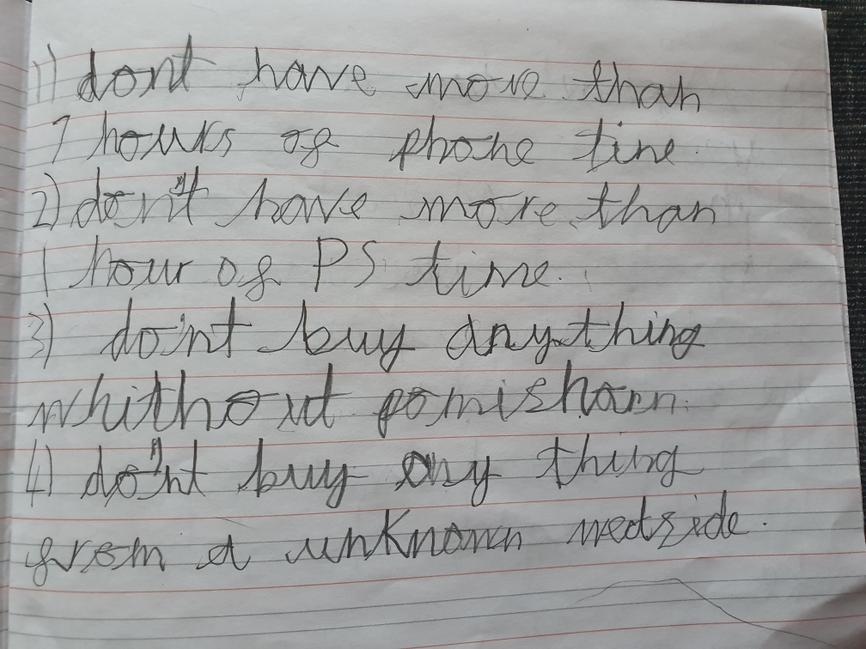 1) dont have more than
7 hours of phone time.
2) don't have more than
1 hour of PS time.
3) do'nt buy anything
whithout pomishorn.
4) do'nt buy any thing
from a unknown wedside.